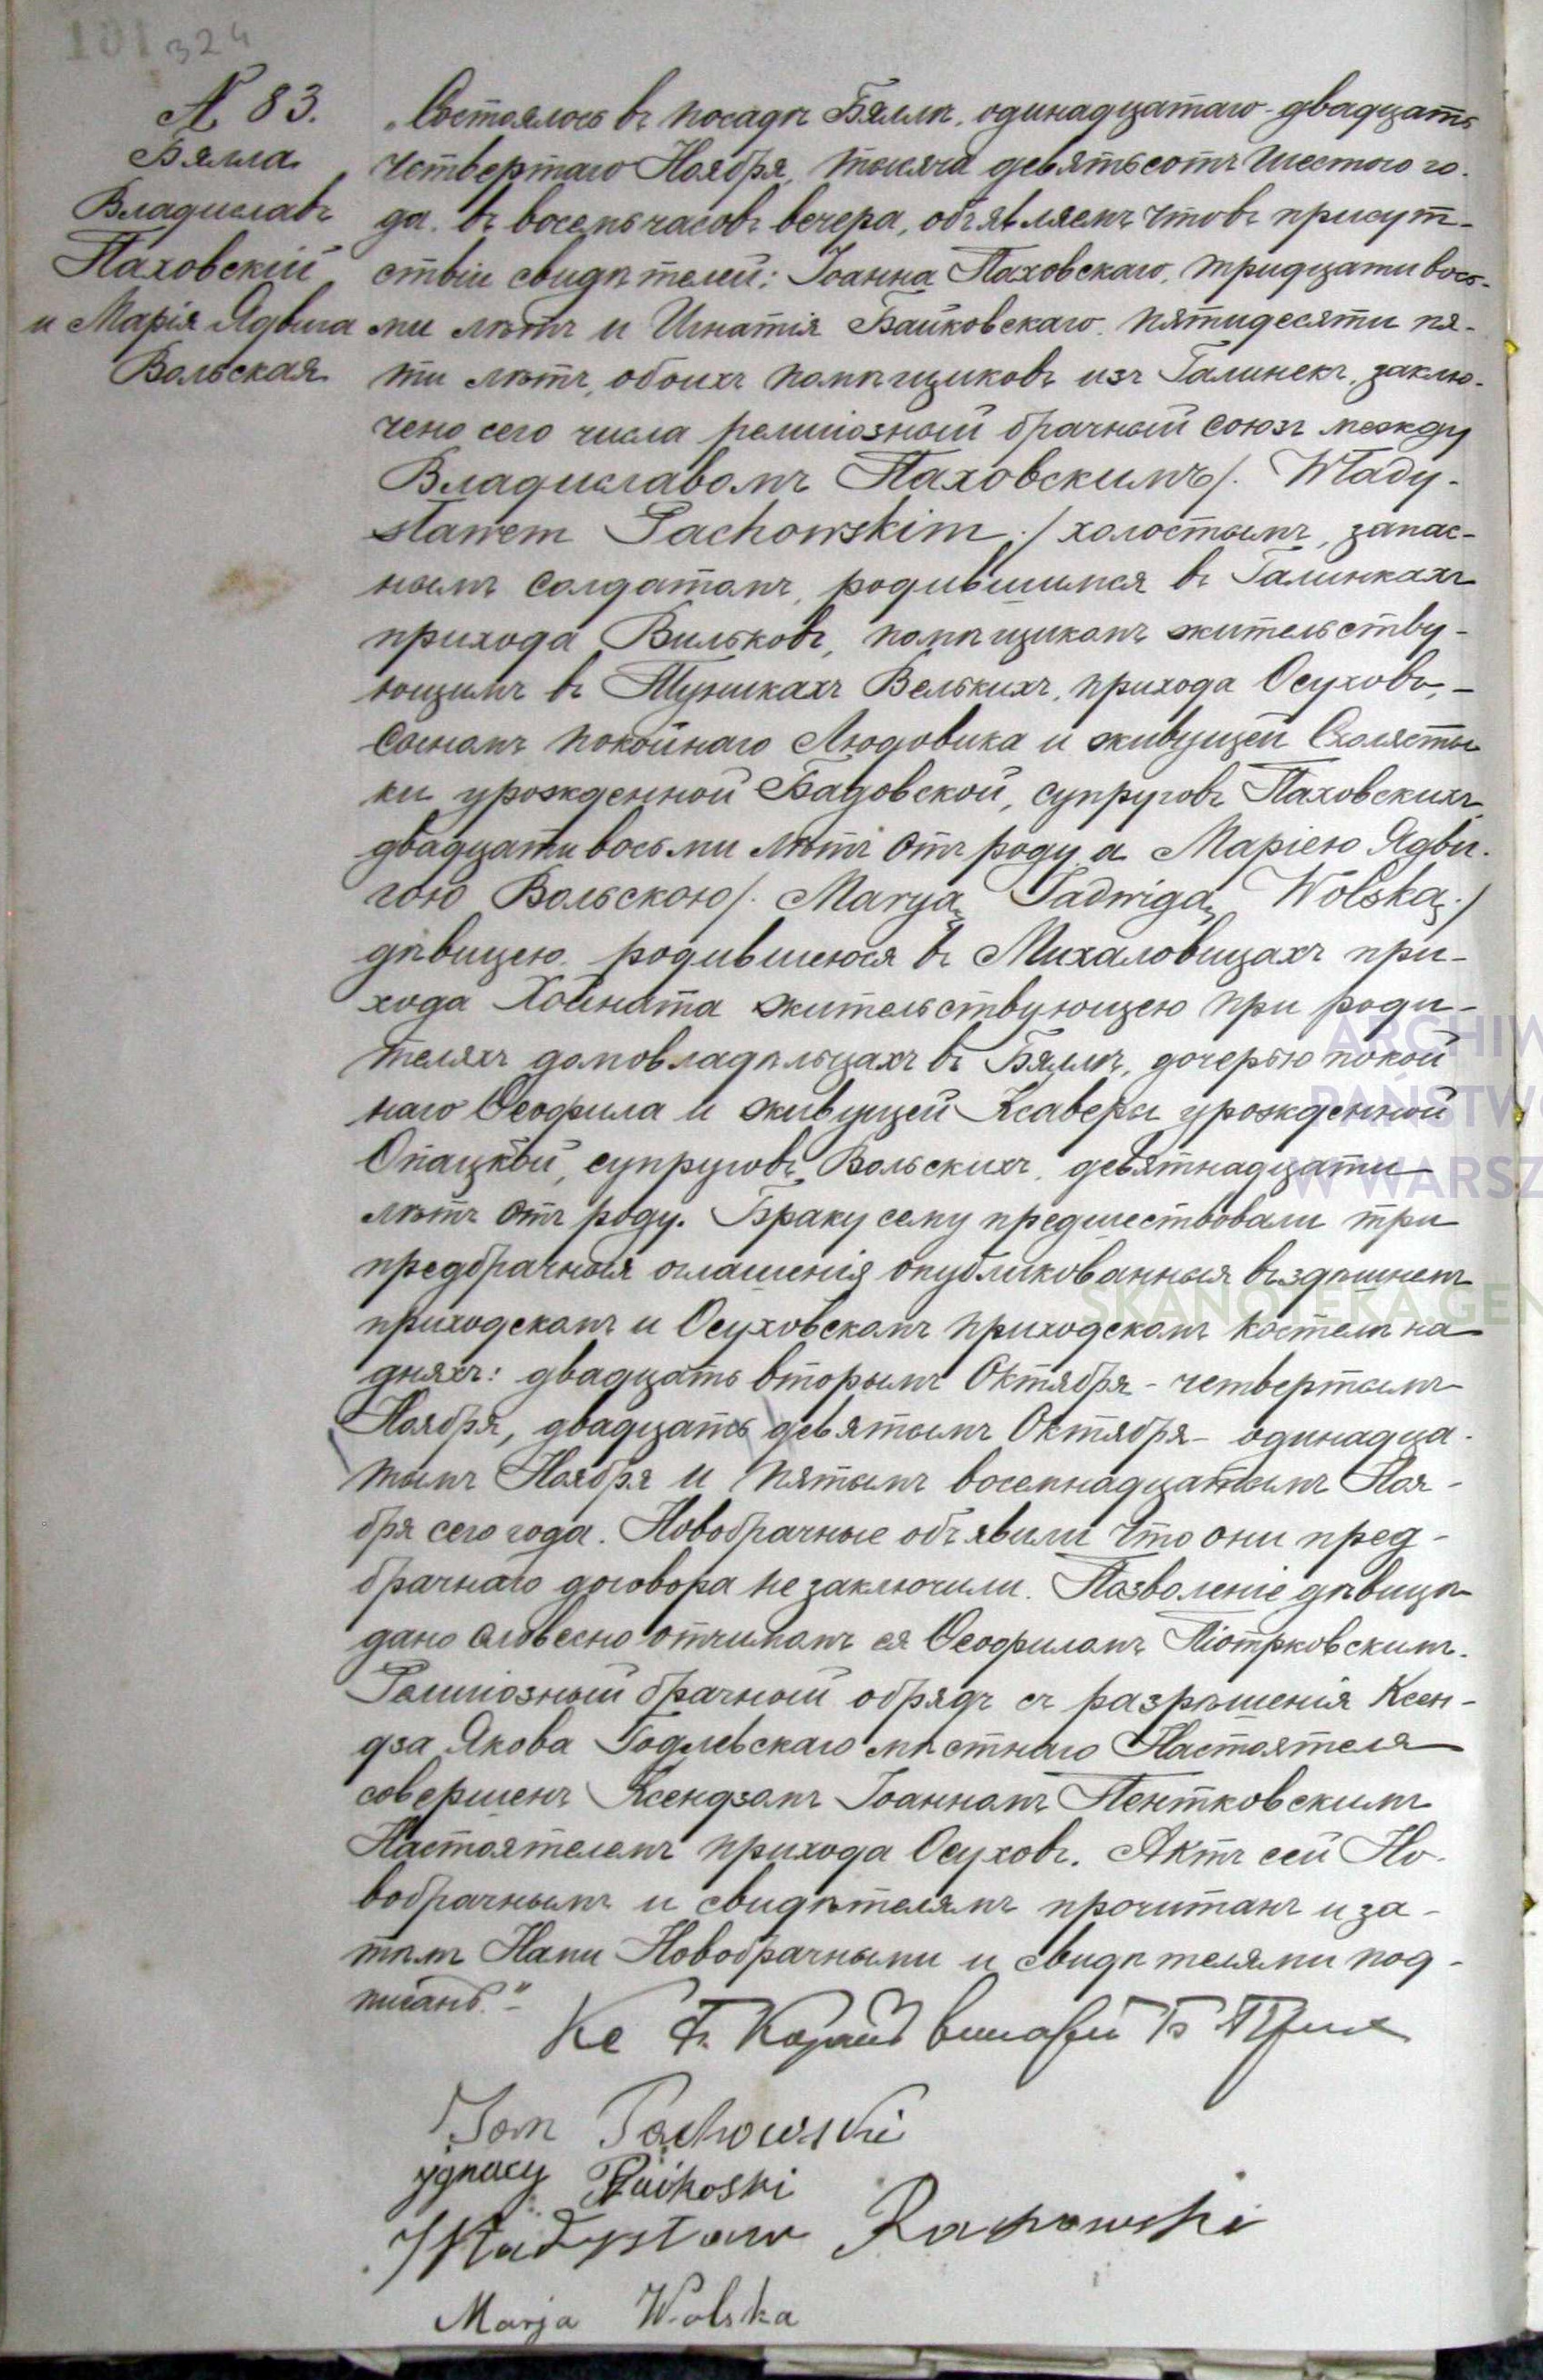 101 324
№ 83.
Бялла
Владиславъ
Паховскій
и Марія Ядвига
Вольская
„Состоялось въ посадѣ Бяллѣ, одинадцатаго - двадцать
четвертаго Ноября, тысяча девятьсотъ шестого го-
да въ восемь часовъ вечера, объявляемъ что въ присут-
ствіи свидѣтелей: Іоанна Паховскаго, тридцати вось-
ми лѣтъ и Игнатія Байковскаго, пятидесяти пя-
ти лѣтъ, обоихъ помѣщиковъ изъ Галинекъ, заклю-
чено сего числа религіозный брачный союзъ между
Владиславомъ Паховскимъ /. Włady-
sławem Pachowskim ./ холостымъ, запас-
нымъ солдатомъ, родившимся въ Галинкахъ
прихода Вильковъ, помѣщикомъ жительству-
ющимъ въ Тушкахъ Велькихъ, прихода Осухово, -
сыномъ покойнаго Людовика и живущей Схоласты
ки урожденной Бадовской, супруговъ Паховскихъ
двадцати восьми лѣтъ отъ роду а Маріею Ядви-
гою Вольскою /. Maryą Jadwigą Wolską ./
дѣвицею родившеюся въ Михаловицахъ при-
хода Хойната жительствующею при роди-
теляхъ домовладѣльцахъ въ Бяллѣ, дочерью покой
наго Ѳеофила и живущей Ксаверы урожденной
Опацкой, супруговъ Вольскихъ, девятнадцати
лѣтъ отъ роду. Браку сему предшествовали три
предбрачныя оглашенія опубликованныя въ здѣшнемъ
приходскомъ и Осуховскомъ приходскомъ костелѣ на
дняхъ: двадцать вторымъ Октября - четвертымъ
Ноября, двадцать девятымъ Октября - одинадца-
тымъ Ноября и пятымъ восемнадцатымъ Ноя-
бря сего года. Новобрачные объявили что они пред-
брачнаго договора не заключили. Позволеніе дѣвицѣ
дано словесно отчимомъ ея Ѳеофиломъ Піотрковскимъ.
Религіозный брачный обрядъ съ разрѣшенія Ксен-
дза Якова Годлевскаго мѣстнаго Настоятеля
совершенъ Ксендзомъ Іоанномъ Пентковскимъ
Настоятелемъ прихода Осуховъ. Актъ сей Но-
вобрачнымъ и свидѣтелямъ прочитанъ и за-
тѣмъ Нами Новобрачными и свидѣтелями под-
писанъ.“ -
Кс
Jan Pachowski
ygnacy Baikoski
Władysław Pachowski
Marja Wolska
ARCHIW
PAŃSTWO
W WARSZ
SKANOTEKA.GEN